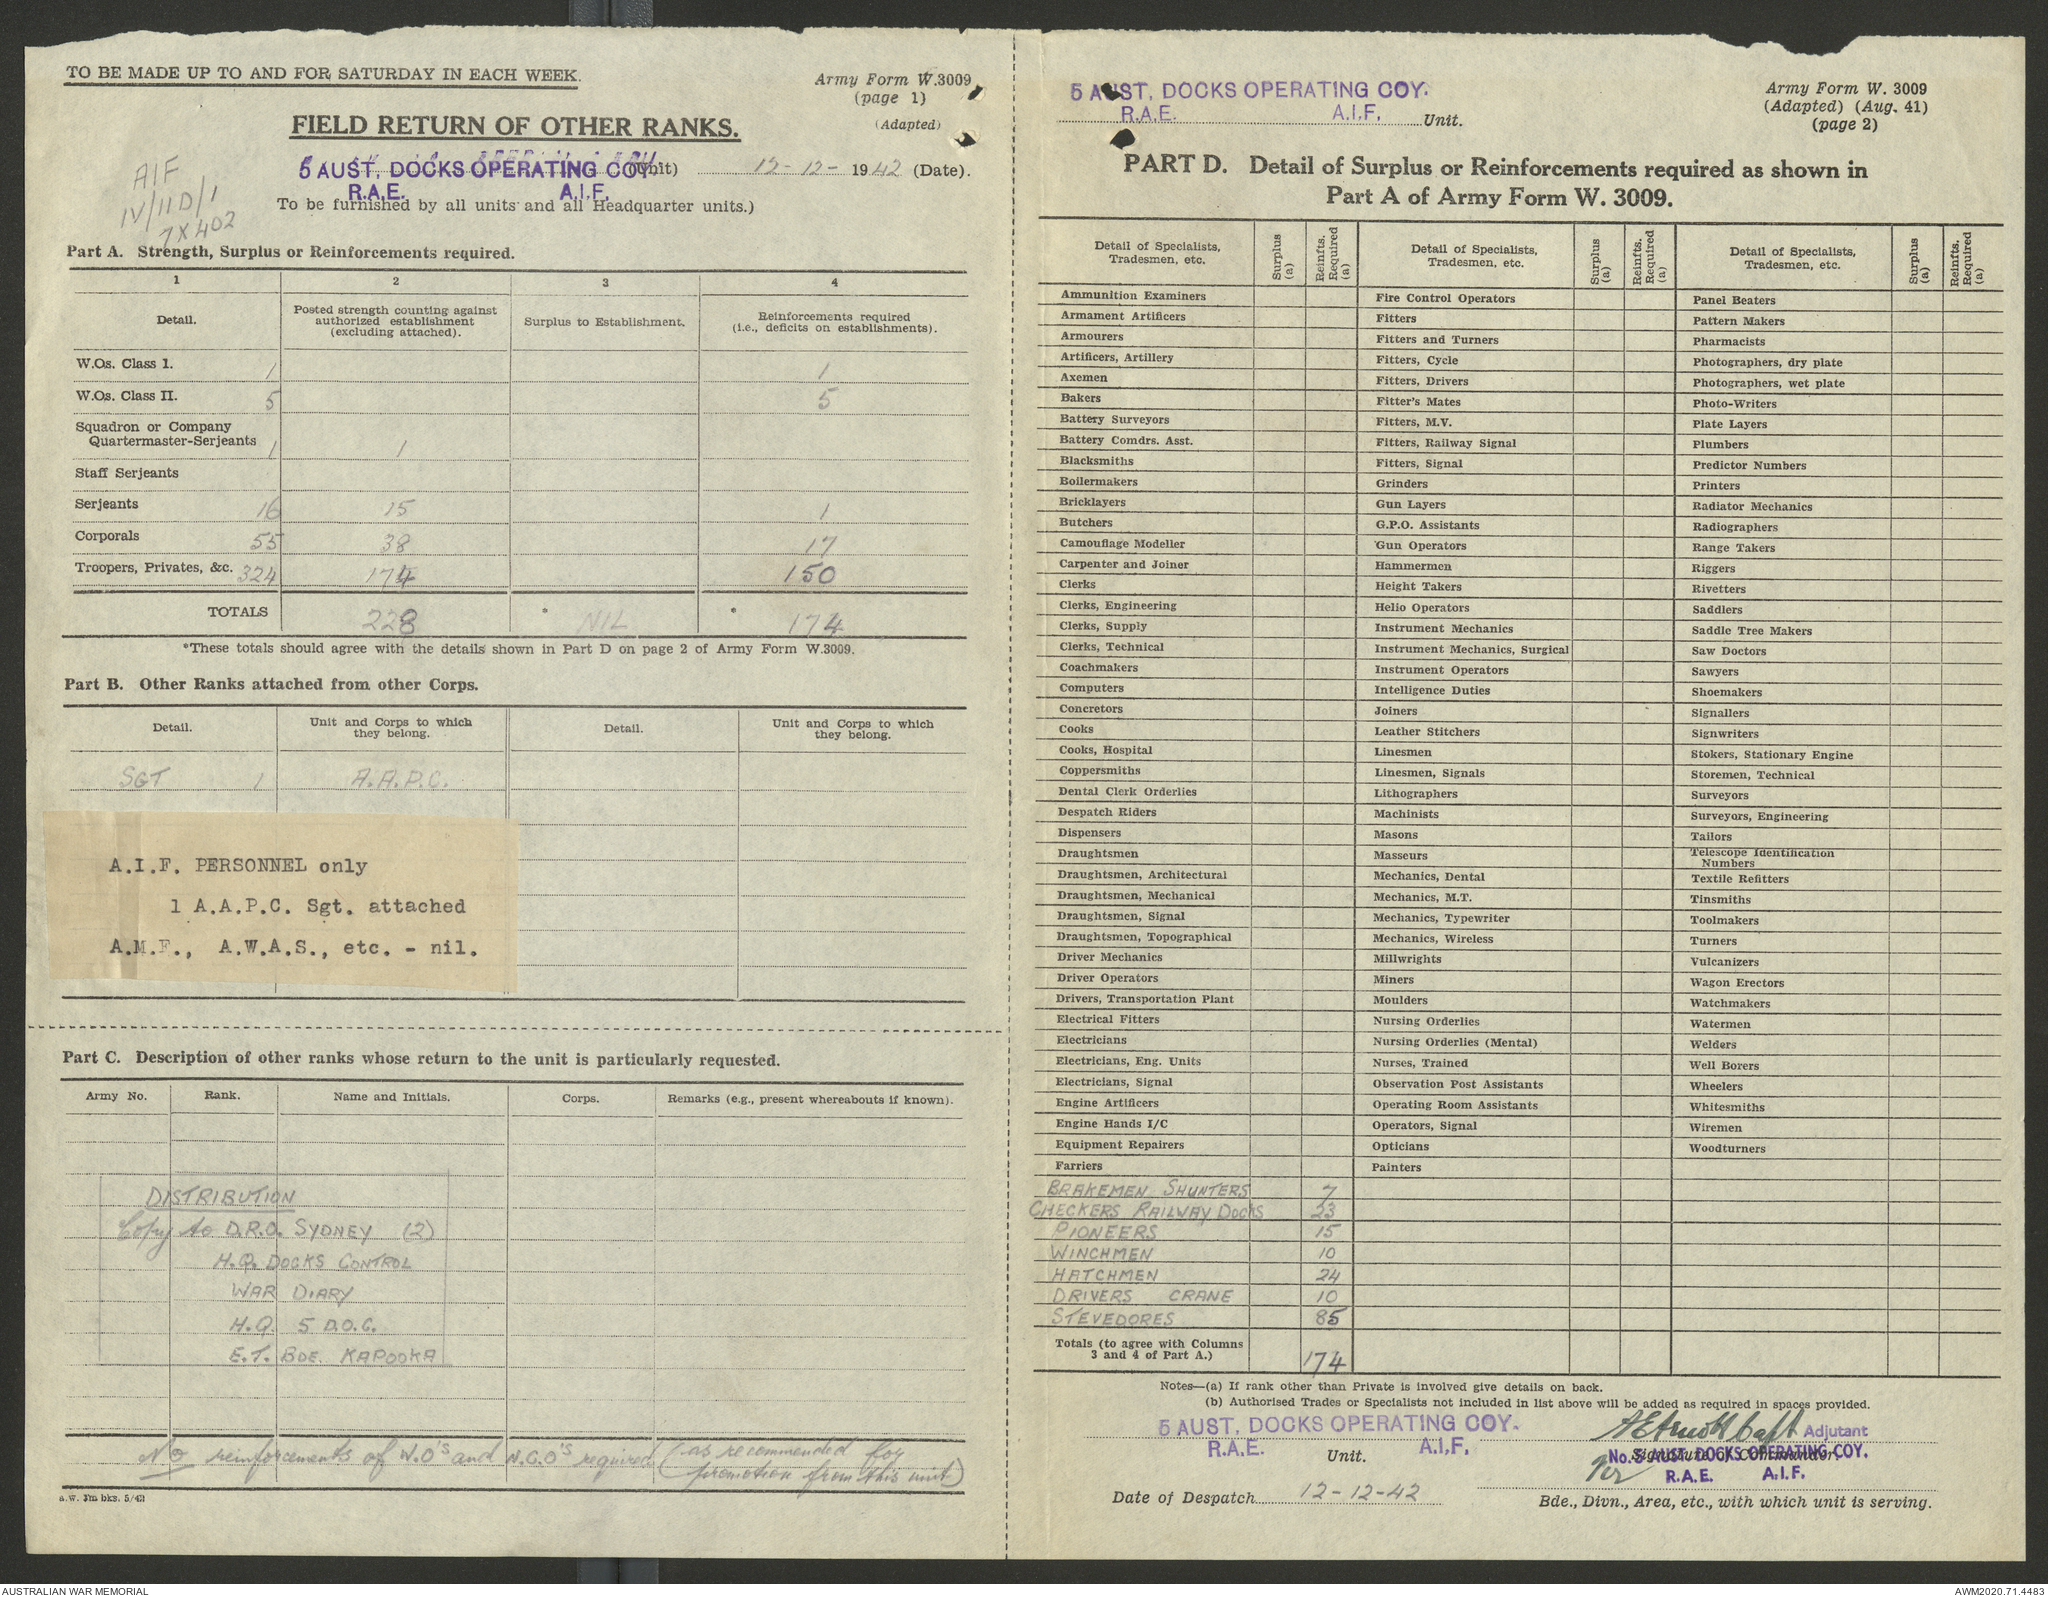 TO BE MADE UP TO AND FOR SATURDAY IN EACH WEEK.
Army Form W.3009
(page 1)
(Adapted)
FIELD RETURN OF OTHER RANKS.
5 AUST. DOCKS OPERATING COY. (Unit) 12-12-1942 (Date).
R.A.E. A.I.F.
To be furnished by all units and all Headquarter units.)
AIF
IV/11D/1
7X402
Part A. Strength, Surplus or Reinforcements required.
1 2 3 4
Detail. Posted strength counting against authorized establishment (excluding attached). Surplus to Establishment. Reinforcements required (i.e., deficits on establishments).
W.Os. Class I. 1 1
W.Os. Class II. 5 5
Squadron or Company
Quartermaster-Serjeants 1 1
Staff Serjeants
Serjeants 16 15 1
Corporals 55 38 17
Troopers, Privates, &c. 324 174 150
TOTALS 228 * NIL * 174
*These totals should agree with the details shown in Part D on page 2 of Army Form W.3009.
Part B. Other Ranks attached from other Corps.
Detail. Unit and Corps to which they belong. Detail. Unit and Corps to which they belong.
SGT 1 A.A.P.C.
A.I.F. PERSONNEL only
1 A.A.P.C. Sgt. attached
A.M.F., A.W.A.S., etc. - nil.
Part C. Description of other ranks whose return to the unit is particularly requested.
Army No. Rank. Name and Initials. Corps. Remarks (e.g., present whereabouts if known).
DISTRIBUTION
Copy to D.R.O. SYDNEY (2)
H.Q. DOCKS CONTROL
WAR DIARY
H.Q. 5 D.O.C.
E.T. BDE. KAPOOKA
No reinforcements of W.O's and N.C.O's required (as recommended for
promotion from this unit)
a.w. Fm bks. 5/42
5 AUST. DOCKS OPERATING COY.
R.A.E. A.I.F. Unit.
Army Form W. 3009
(Adapted) (Aug. 41)
(page 2)
PART D. Detail of Surplus or Reinforcements required as shown in
Part A of Army Form W. 3009.
Detail of Specialists, Tradesmen, etc. Surplus (a) Reinfts. Required (a) Detail of Specialists, Tradesmen, etc. Surplus (a) Reinfts. Required (a) Detail of Specialists, Tradesmen, etc. Surplus (a) Reinfts. Required (a)
Ammunition Examiners Fire Control Operators Panel Beaters
Armament Artificers Fitters Pattern Makers
Armourers Fitters and Turners Pharmacists
Artificers, Artillery Fitters, Cycle Photographers, dry plate
Axemen Fitters, Drivers Photographers, wet plate
Bakers Fitter's Mates Photo-Writers
Battery Surveyors Fitters, M.V. Plate Layers
Battery Comdrs. Asst. Fitters, Railway Signal Plumbers
Blacksmiths Fitters, Signal Predictor Numbers
Boilermakers Grinders Printers
Bricklayers Gun Layers Radiator Mechanics
Butchers G.P.O. Assistants Radiographers
Camouflage Modeller Gun Operators Range Takers
Carpenter and Joiner Hammermen Riggers
Clerks Height Takers Rivetters
Clerks, Engineering Helio Operators Saddlers
Clerks, Supply Instrument Mechanics Saddle Tree Makers
Clerks, Technical Instrument Mechanics, Surgical Saw Doctors
Coachmakers Instrument Operators Sawyers
Computers Intelligence Duties Shoemakers
Concretors Joiners Signallers
Cooks Leather Stitchers Signwriters
Cooks, Hospital Linesmen Stokers, Stationary Engine
Coppersmiths Linesmen, Signals Storemen, Technical
Dental Clerk Orderlies Lithographers Surveyors
Despatch Riders Machinists Surveyors, Engineering
Dispensers Masons Tailors
Draughtsmen Masseurs Telescope Identification Numbers
Draughtsmen, Architectural Mechanics, Dental Textile Refitters
Draughtsmen, Mechanical Mechanics, M.T. Tinsmiths
Draughtsmen, Signal Mechanics, Typewriter Toolmakers
Draughtsmen, Topographical Mechanics, Wireless Turners
Driver Mechanics Millwrights Vulcanizers
Driver Operators Miners Wagon Erectors
Drivers, Transportation Plant Moulders Watchmakers
Electrical Fitters Nursing Orderlies Watermen
Electricians Nursing Orderlies (Mental) Welders
Electricians, Eng. Units Nurses, Trained Well Borers
Electricians, Signal Observation Post Assistants Wheelers
Engine Artificers Operating Room Assistants Whitesmiths
Engine Hands I/C Operators, Signal Wiremen
Equipment Repairers Opticians Woodturners
Farriers Painters
BRAKEMEN SHUNTERS 7
CHECKERS RAILWAY DOCKS 23
PIONEERS 15
WINCHMEN 10
HATCHMEN 24
DRIVERS CRANE 10
STEVEDORES 85
Totals (to agree with Columns
3 and 4 of Part A.) 174
Notes—(a) If rank other than Private is involved give details on back.
(b) Authorised Trades or Specialists not included in list above will be added as required in spaces provided.
5 AUST. DOCKS OPERATING COY.
R.A.E. Unit. A.I.F.
Capt Adjutant
Signature of Commander.
No. 5 AUST. DOCKS OPERATING COY.
R.A.E. A.I.F.
Date of Despatch 12-12-42
Bde., Divn., Area, etc., with which unit is serving.
AUSTRALIAN WAR MEMORIAL
AWM2020.71.4483